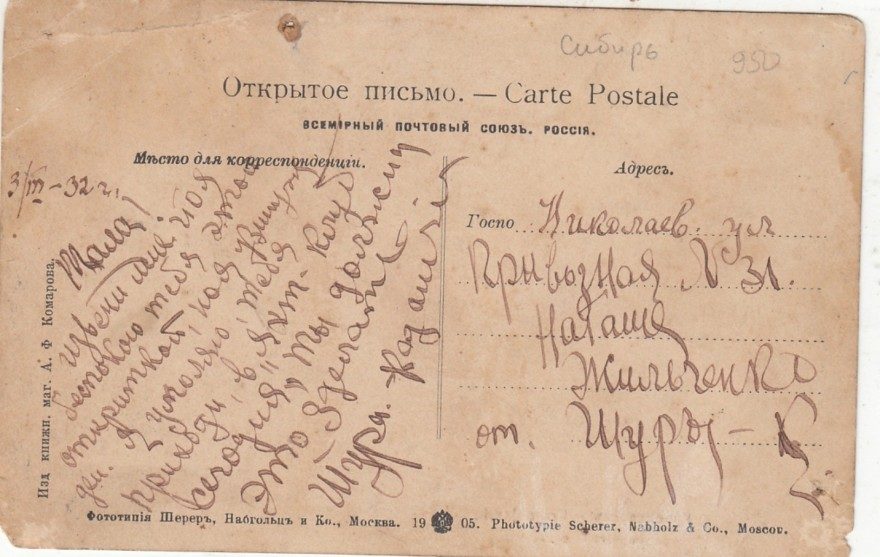 Сибирь 950
Открытое письмо. — Carte Postale
ВСЕМІРНЫЙ ПОЧТОВЫЙ СОЮЗЪ. РОССІЯ.
Мѣсто для корреспонденціи.
Адресъ.
3/III - 32 г.
Тала!
Извени мне
беспокою тебя этой
открыткой, но я
Я умоляю тебя
приходи, в
сегодня "яхт-клуб"
Это ты должна
сделать
Шура.
Госпо Николаев. ул
Привозная N 31.
Наташе
Жильченко
от. Шуры -
Изд книжн. маг. А. Ф Комарова.
Фототипія Шереръ, Набгольцъ и Ко., Москва. 19 05. Phototypie Scherer, Nabholz & Co., Moscou.